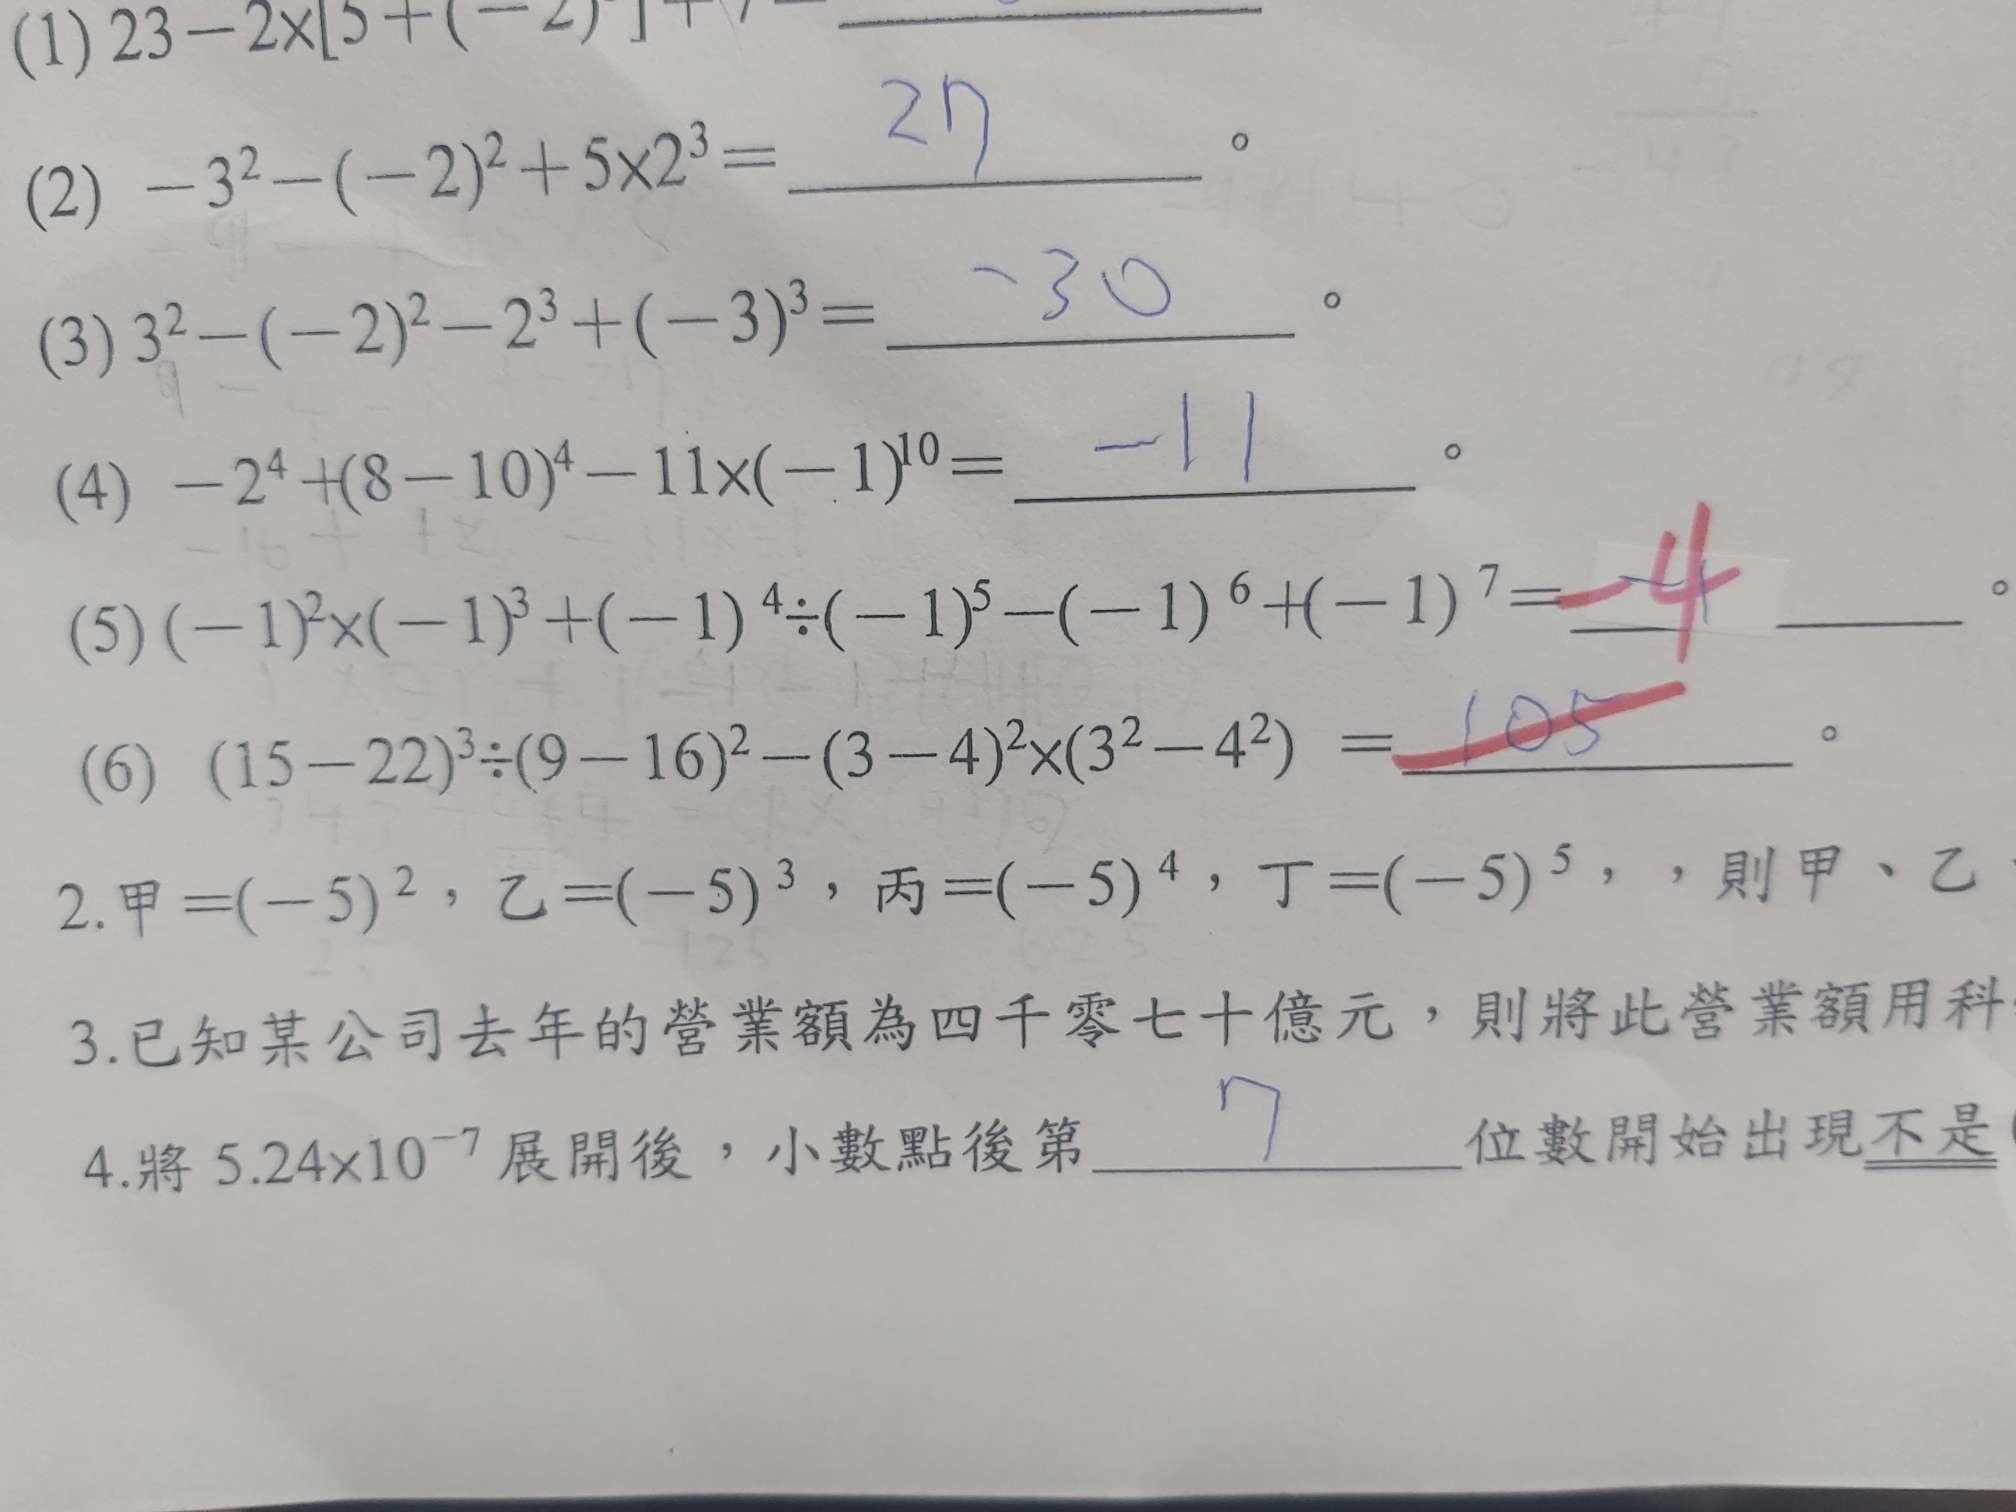 (1) 23－2×[5＋(－2)
(2) －3²－(－2)²＋5×2³＝ 27 。
(3) 3²－(－2)²－2³＋(－3)³＝ -30 。
(4) －2⁴＋(8－10)⁴－11×(－1)¹⁰＝ -11 。
(5) (－1)²×(－1)³＋(－1)⁴÷(－1)⁵－(－1)⁶＋(－1)⁷＝ -4 。
(6) (15－22)³÷(9－16)²－(3－4)²×(3²－4²) ＝ 105 。
2.甲＝(－5)²，乙＝(－5)³，丙＝(－5)⁴，丁＝(－5)⁵，，則甲、乙
3.已知某公司去年的營業額為四千零七十億元，則將此營業額用科
4.將 5.24×10⁻⁷ 展開後，小數點後第 7 位數開始出現不是